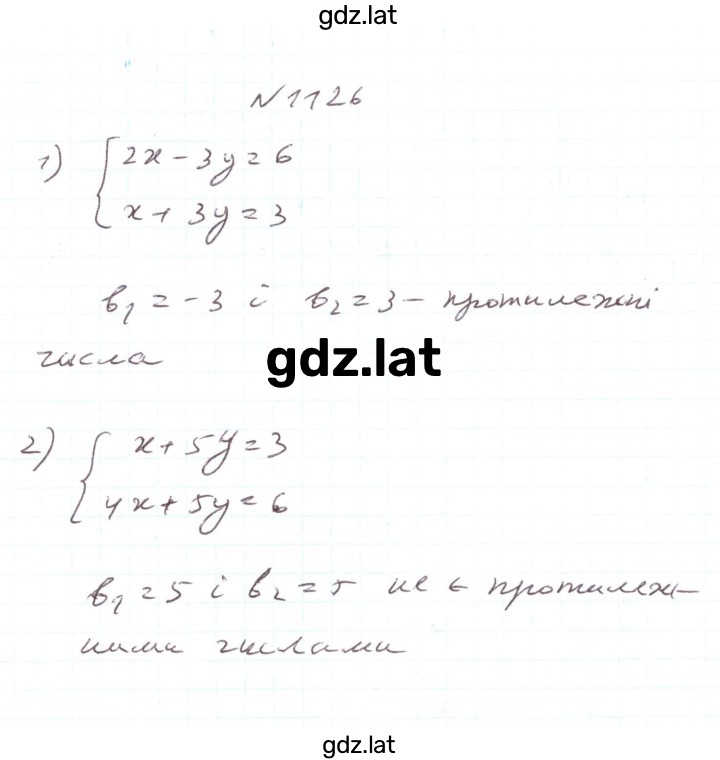 gdz.lat
№1126
1) { 2x - 3y = 6
x + 3y = 3
b₁ = -3 і b₂ = 3 - протилежні
числа
gdz.lat
2) { x + 5y = 3
4x + 5y = 6
b₁ = 5 і b₂ = 5 не є протилеж-
ними числами
gdz.lat